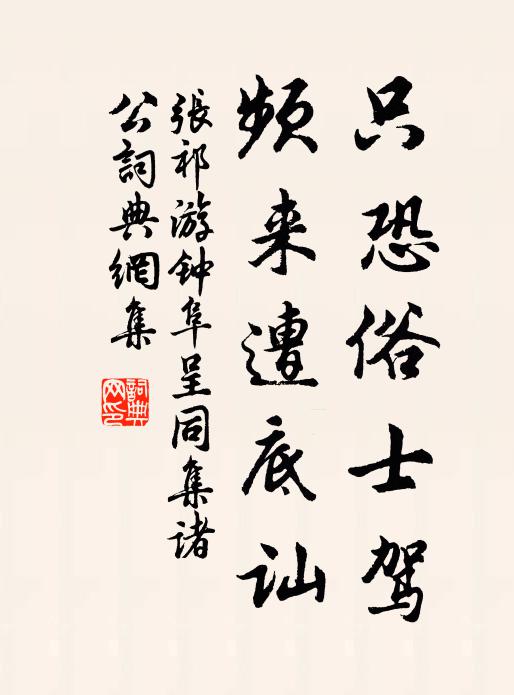 只恐俗士驾
频来遭底讪
張祁游钟阜呈同集诸
公詞典網集
詞典
网印